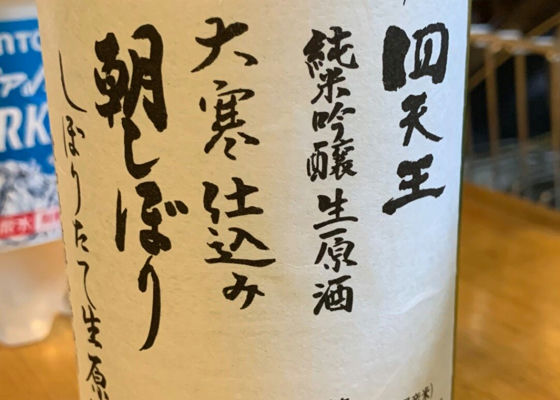 四天王
純米吟醸生原酒
大寒仕込み
朝しぼり
しぼりたて生原